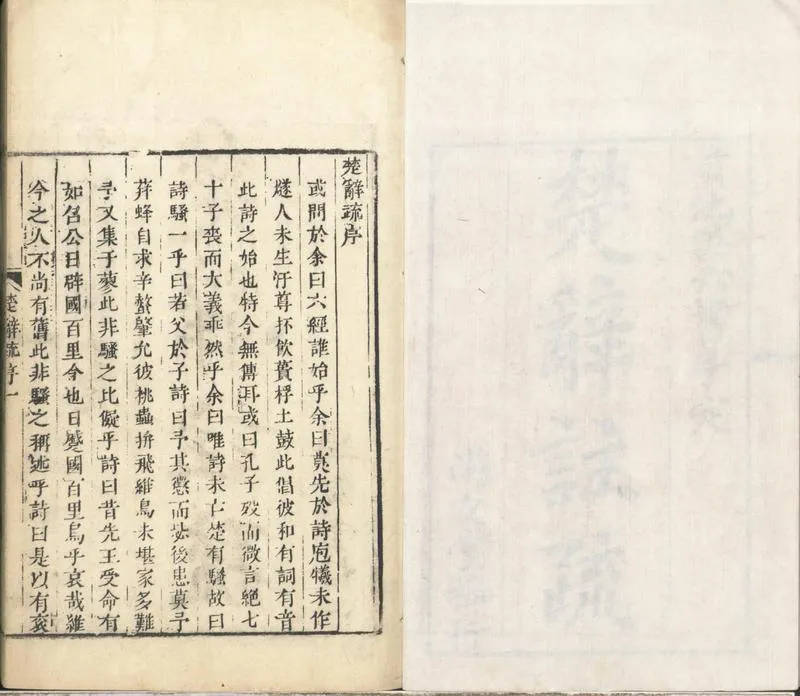 楚辭疏序
或問於余曰六經誰始乎余曰莫先於詩庖犧未作
燧人未生汙尊抔飲蕢桴土鼓此倡彼和有詞有音
此詩之始也特今無傳耳或曰孔子歿而微言絕七
十子喪而大義乖然乎余曰唯詩未亡楚有騷故曰
詩騷一乎曰若父於子詩曰予其懲而毖後患莫予
荓蜂自求辛螫肇允彼桃蟲拚飛維鳥未堪家多難
予又集于蓼此非騷之比儗乎詩曰昔先王受命有
如召公日辟國百里今也日蹙國百里烏乎哀哉維
今之人不尚有舊此非騷之稱述乎詩曰是以有袞
楚辭疏序一